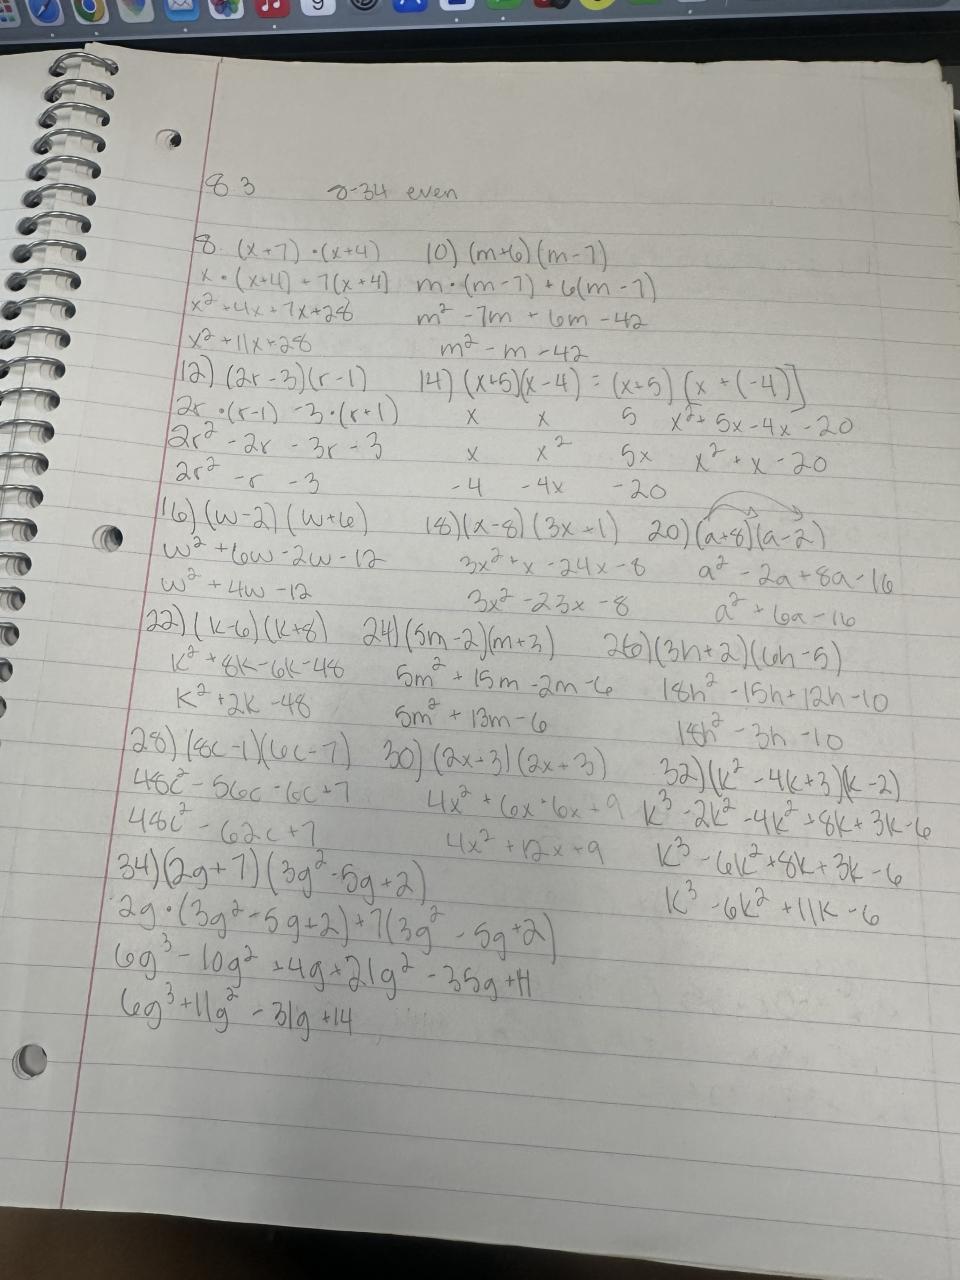 8.3 8-34 even
8. (x+7) •(x+4)
x • (x+4) + 7(x+4)
x² +4x+7x+28
x² +11x+28
10) (m+6)(m-7)
m•(m-7) + 6(m-7)
m² -7m + 6m -42
m² -m -42
12) (2r-3)(r-1)
2r •(r-1) -3•(r+1)
2r² -2r -3r -3
2r² -r -3
14) (x+5)(x-4) = (x+5) (x +(-4)]
x x 5 x²+ 5x-4x-20
x x² 5x x² +x -20
-4 -4x -20
16) (w-2) (w+6)
w² +6w-2w-12
w² +4w-12
18)(x-8)(3x+1)
3x² +x -24x-8
3x² -23x -8
20)(a+8)(a-2)
a² -2a+8a-16
a² +6a-16
22)(k-6)(k+8)
k² +8k-6k-48
k² +2k-48
24)(5m-2)(m+3)
5m² +15m-2m-6
5m² +13m-6
26)(3h+2)(6h-5)
18h² -15h+12h-10
18h² -3h-10
28) (8c-1)(6c-7)
48c² -56c-6c+7
48c² -62c+7
30) (2x+3)(2x+3)
4x² +6x+6x+9
4x² +12x+9
32)(k² -4k+3)(k-2)
k³ -2k² -4k² +8k+3k-6
k³ -6k² +8k+3k-6
k³ -6k² +11k-6
34)(2g+7)(3g²-5g+2)
2g•(3g²-5g+2)+7(3g² -5g+2)
6g³ -10g² +4g+21g² -35g+14
6g³+11g² -31g+14